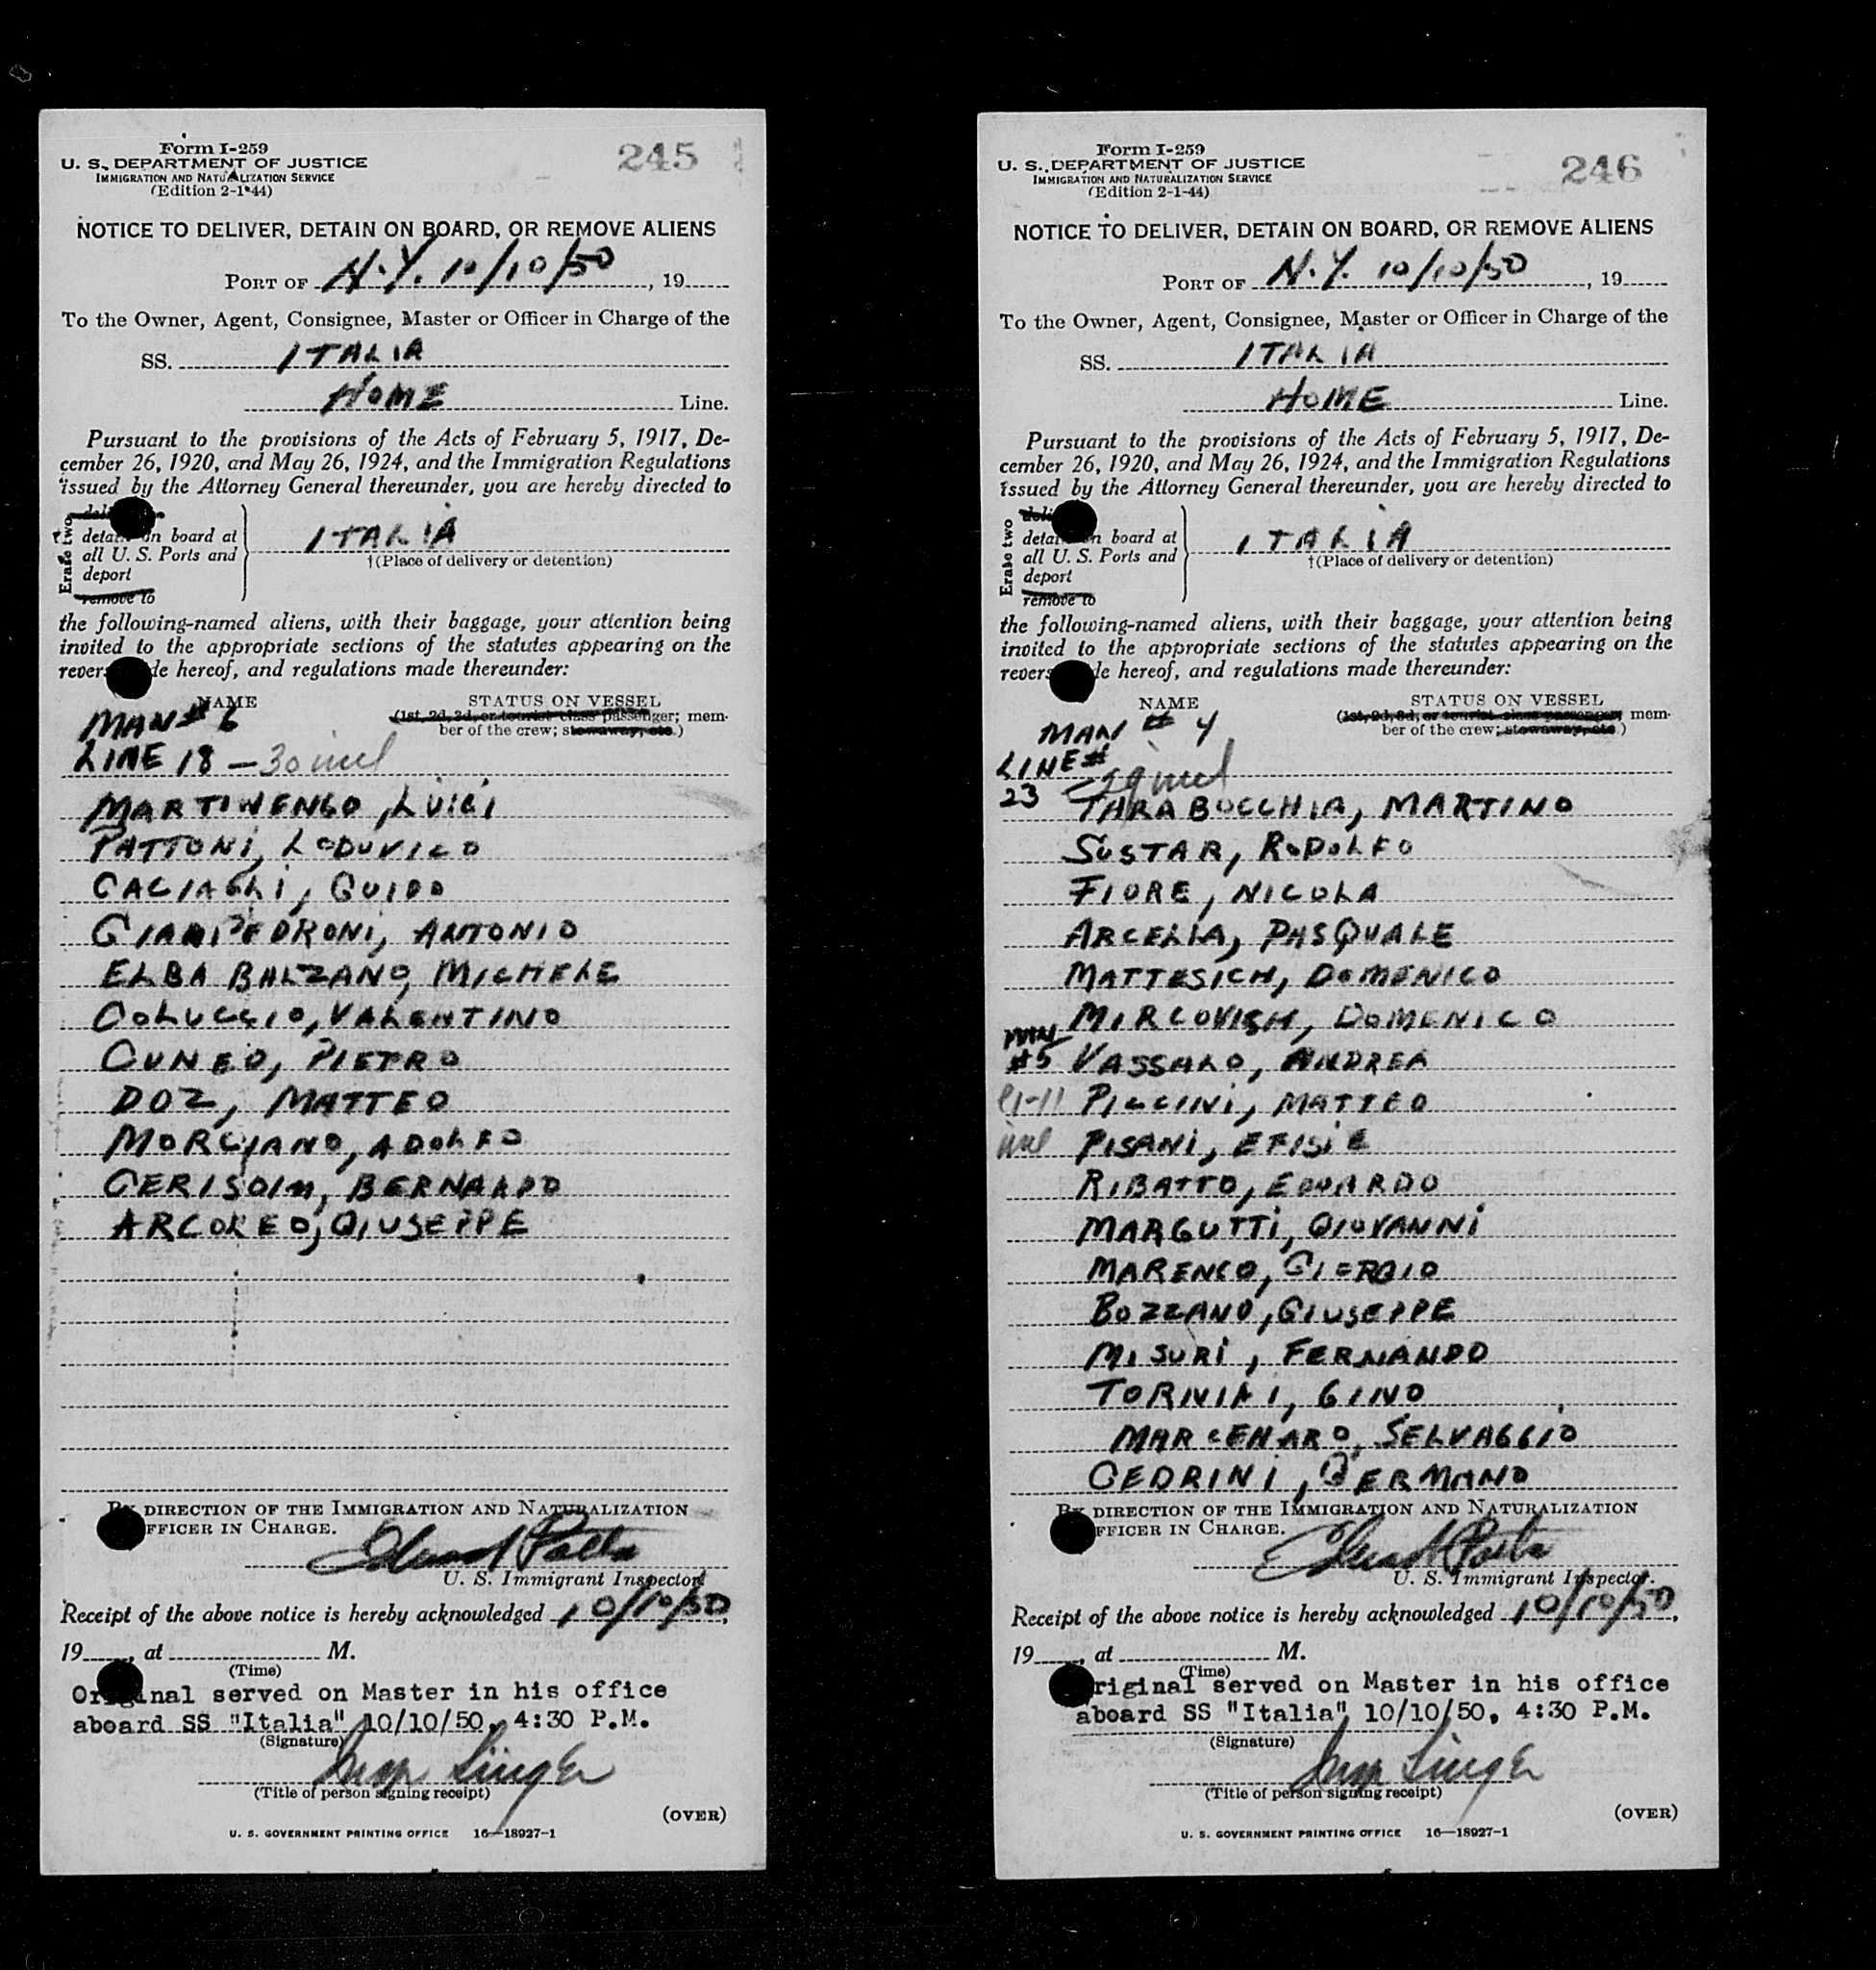 Form I-259
U. S. DEPARTMENT OF JUSTICE
IMMIGRATION AND NATURALIZATION SERVICE
(Edition 2-1-44)
245
NOTICE TO DELIVER, DETAIN ON BOARD, OR REMOVE ALIENS
PORT OF N.Y. 10/10/50, 19
To the Owner, Agent, Consignee, Master or Officer in Charge of the
SS. ITALIA
HOME Line.
Pursuant to the provisions of the Acts of February 5, 1917, De-
cember 26, 1920, and May 26, 1924, and the Immigration Regulations
issued by the Attorney General thereunder, you are hereby directed to
Erase two
detain on board at
all U. S. Ports and
deport
remove to
ITALIA
†(Place of delivery or detention)
the following-named aliens, with their baggage, your attention being
invited to the appropriate sections of the statutes appearing on the
reverse side hereof, and regulations made thereunder:
NAME
STATUS ON VESSEL
(1st, 2d, 3d, or tourist class passenger; mem-
ber of the crew; stowaway, etc.)
MAN # 6
LINE 18 - 30 incl
MARTINENGO, LUIGI
PATTONI, LODOVICO
CACIAGLI, GUIDO
GIAMPEDRONI, ANTONIO
ELBA BALZANO, MICHELE
COLUCCIO, VALENTINO
CUNEO, PIETRO
DOZ, MATTEO
MORCIANO, ADOLFO
BERNARDO
ARCOREO, GIUSEPPE
BY DIRECTION OF THE IMMIGRATION AND NATURALIZATION
OFFICER IN CHARGE.
U. S. Immigrant Inspector.
Receipt of the above notice is hereby acknowledged 10/10/50,
19, at M.
(Time)
Original served on Master in his office
aboard SS "Italia" 10/10/50, 4:30 P.M.
(Signature)
Insp Singer
(Title of person signing receipt)
(OVER)
U. S. GOVERNMENT PRINTING OFFICE 16—18927-1
Form I-259
U. S. DEPARTMENT OF JUSTICE
IMMIGRATION AND NATURALIZATION SERVICE
(Edition 2-1-44)
246
NOTICE TO DELIVER, DETAIN ON BOARD, OR REMOVE ALIENS
PORT OF N.Y. 10/10/50, 19
To the Owner, Agent, Consignee, Master or Officer in Charge of the
SS. ITALIA
HOME Line.
Pursuant to the provisions of the Acts of February 5, 1917, De-
cember 26, 1920, and May 26, 1924, and the Immigration Regulations
issued by the Attorney General thereunder, you are hereby directed to
Erase two
detain on board at
all U. S. Ports and
deport
remove to
ITALIA
†(Place of delivery or detention)
the following-named aliens, with their baggage, your attention being
invited to the appropriate sections of the statutes appearing on the
reverse side hereof, and regulations made thereunder:
NAME
STATUS ON VESSEL
(1st, 2d, 3d, or tourist class passenger; mem-
ber of the crew; stowaway, etc.)
MAN # 4
LINE #
23 incl
TARABOCCHIA, MARTINO
SUSTAR, RODOLFO
FIORE, NICOLA
ARCELIA, PASQUALE
MATTESICH, DOMENICO
MIRCOVISH, DOMENICO
MAN
#5 VASSALO, ANDREA
PICCINI, MATTEO
incl PISANI, EFISIE
RIBATTO, EDUARDO
MARGUTTI, GIOVANNI
MARENCO, GIORGIO
BOZZANO, GIUSEPPE
MISURI, FERNANDO
GINO
MARCENARO, SELVAGGIO
CEDRINI, GERMANO
BY DIRECTION OF THE IMMIGRATION AND NATURALIZATION
OFFICER IN CHARGE.
U. S. Immigrant Inspector.
Receipt of the above notice is hereby acknowledged 10/10/50,
19, at M.
(Time)
Original served on Master in his office
aboard SS "Italia" 10/10/50, 4:30 P.M.
(Signature)
Insp Singer
(Title of person signing receipt)
(OVER)
U. S. GOVERNMENT PRINTING OFFICE 16—18927-1